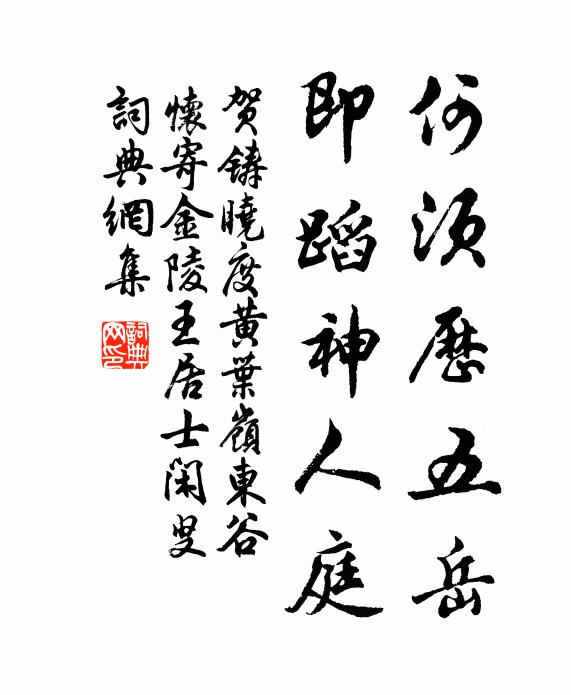 何须歷五岳
即蹈神人庭
贺鑄曉度黄葉嶺東谷
懷寄金陵王居士閑叟
詞典網集
詞典网印